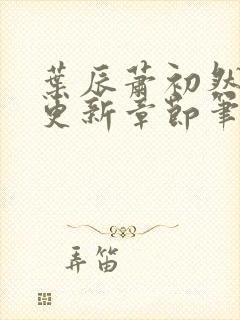 葉辰蕭初然
更新章節筆
弄笛